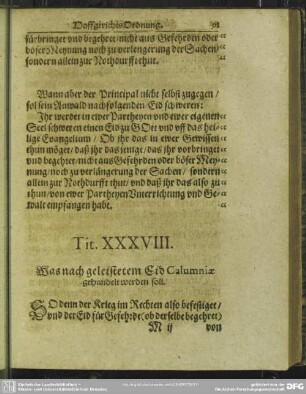 Hoffgerichts Ordnung. 91
fürbringet vnd begehret nicht aus Gefehrden oder
böser Meynung noch zu verlengerung der Sachen
sondern allein zur Nothdurfft thut.
Wann aber der Principal nicht selbst zugegen /
sol sein Anwald nachfolgenden Eid schweren:
Ihr werdet in ewer Partheyen vnd ewer eigenen
Seel schweren einen Eid zu GOtt vnd vff das hei-
lige Evangelium / Ob ihr das in ewer Gewissen
thun möget / daß ihr das jenige / das ihr vorbringet
vnd begehret / nicht aus Gefehrden oder böser Mey-
nung / noch zu verlängerung der Sachen / sondern
allein zur Nothdurfft thut / vnd daß ihr das also zu
thun / von ewer Partheyen Vnterrichtung vnd Ge-
walt empfangen habt.
Tit. XXXVIII.
Was nach geleistetem Eid Calumniæ
gehandelt werden soll.
SO denn der Krieg im Rechten also befestiget /
vnd der Eid für Gefehrde (ob derselbe begehret)
M ij von